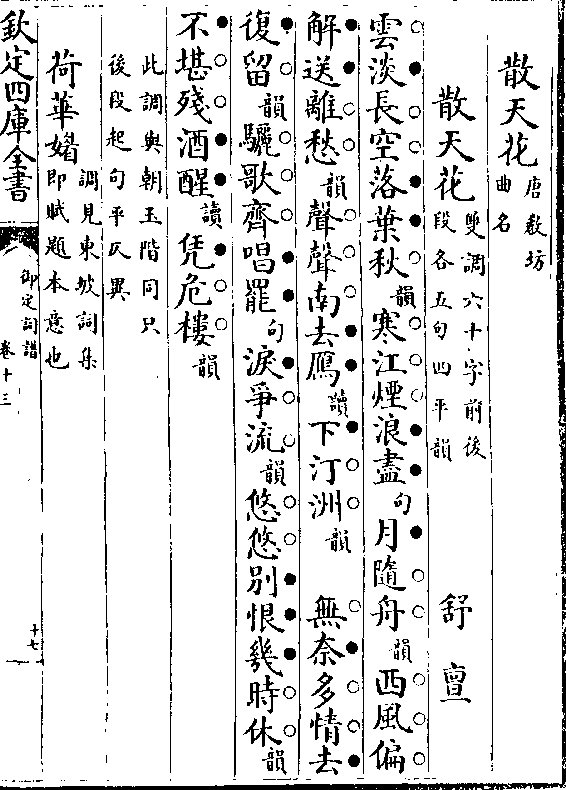 散天花 唐教坊曲名
散天花 雙調六十字前後段各五句四平韻 舒亶
雲淡長空落葉秋韻寒江煙浪盡句月隨舟韻西風偏
解送離愁韻聲聲南去鴈讀下汀洲韻 無奈多情去
復留韻驪歌齊唱罷句淚爭流韻悠悠别恨幾時休韻
不堪殘酒醒讀凭危樓韻
此調與朝玉階同只後段起句平仄異
荷華媚 調見東坡詞集即賦題本意也
欽定四庫全書 御定詞譜 卷十三 十七